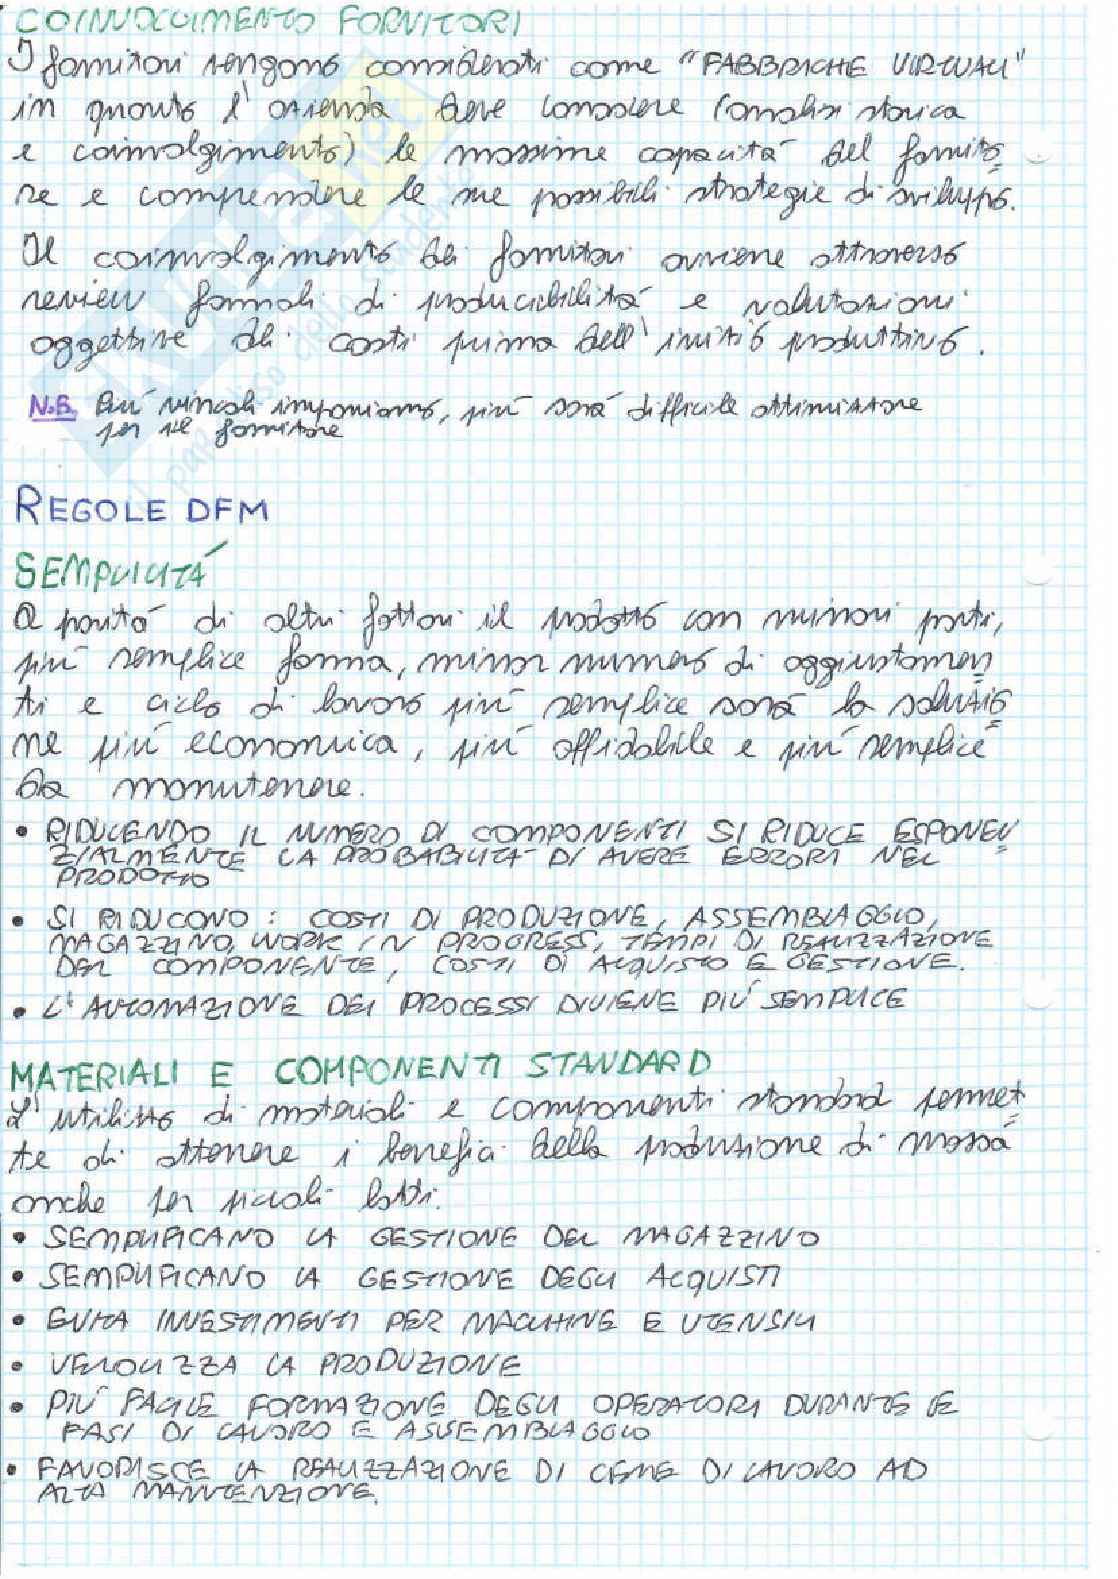 COINVOLGIMENTO FORNITORI
I fornitori vengono considerati come "FABBRICHE VIRTUALI"
in quanto l'azienda deve conoscere (analisi storica
e coinvolgimento) le massime capacità del fornito
re e comprendere le sue possibili strategie di sviluppo.
Il coinvolgimento dei fornitori avviene attraverso
review formali di producibilità e valutazioni
oggettive dei costi prima dell'inizio produttivo.
N.B. Più vincoli imponiamo, più sarà difficile ottimizzare
per il fornitore
REGOLE DFM
SEMPLICITÀ
A parità di altri fattori il prodotto con minori parti,
più semplice forma, minor numero di aggiustamen
ti e ciclo di lavoro più semplice sarà la soluzio
ne più economica, più affidabile e più semplice
da manutenere.
• RIDUCENDO IL NUMERO DI COMPONENTI SI RIDUCE ESPONEN
ZIALMENTE LA PROBABILITÀ DI AVERE ERRORI NEL
PRODOTTO
• SI RIDUCONO: COSTI DI PRODUZIONE, ASSEMBLAGGIO,
MAGAZZINO, WORK IN PROGRESS, TEMPI DI REALIZZAZIONE
DEL COMPONENTE, COSTI DI ACQUISTO E GESTIONE.
• L'AUTOMAZIONE DEI PROCESSI DIVIENE PIÙ SEMPLICE
MATERIALI E COMPONENTI STANDARD
L'utilizzo di materiali e componenti standard permet
te di ottenere i benefici della produzione di massa
anche per piccoli lotti.
• SEMPLIFICANO LA GESTIONE DEL MAGAZZINO
• SEMPLIFICANO LA GESTIONE DEGLI ACQUISTI
• EVITA INVESTIMENTI PER MACCHINE E UTENSILI
• VELOCIZZA LA PRODUZIONE
• PIÙ FACILE FORMAZIONE DEGLI OPERATORI DURANTE LE
FASI DI LAVORO E ASSEMBLAGGIO
• FAVORISCE LA REALIZZAZIONE DI CELLE DI LAVORO AD
ALTA MANUTENZIONE.